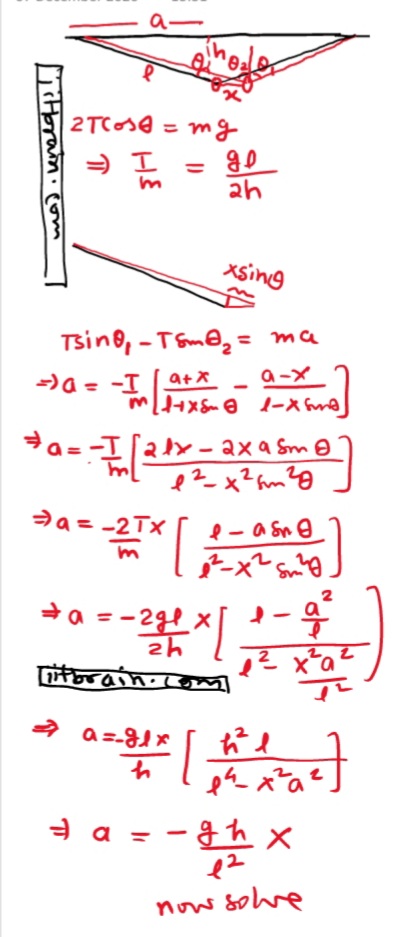 a
h
θ₁ θ₂ θ₁
l θ θ
x
iitbrain.com
2Tcosθ = mg
⇒ T/m = gl/2h
xsinθ
Tsinθ₁ - Tsinθ₂ = ma
⇒ a = -T/m [ (a+x)/(l+xsinθ) - (a-x)/(l-xsinθ) ]
⇒ a = -T/m [ (2lx - 2xa sinθ)/(l² - x² sin²θ) ]
⇒ a = -2Tx/m [ (l - a sinθ)/(l² - x² sin²θ) ]
⇒ a = -2gl/2h x [ (l - a²/l)/(l² - x²a²/l²) ]
iitbrain.com
⇒ a = -glx/h [ h²l/(l⁴ - x²a²) ]
⇒ a = - gh/l² x
now solve